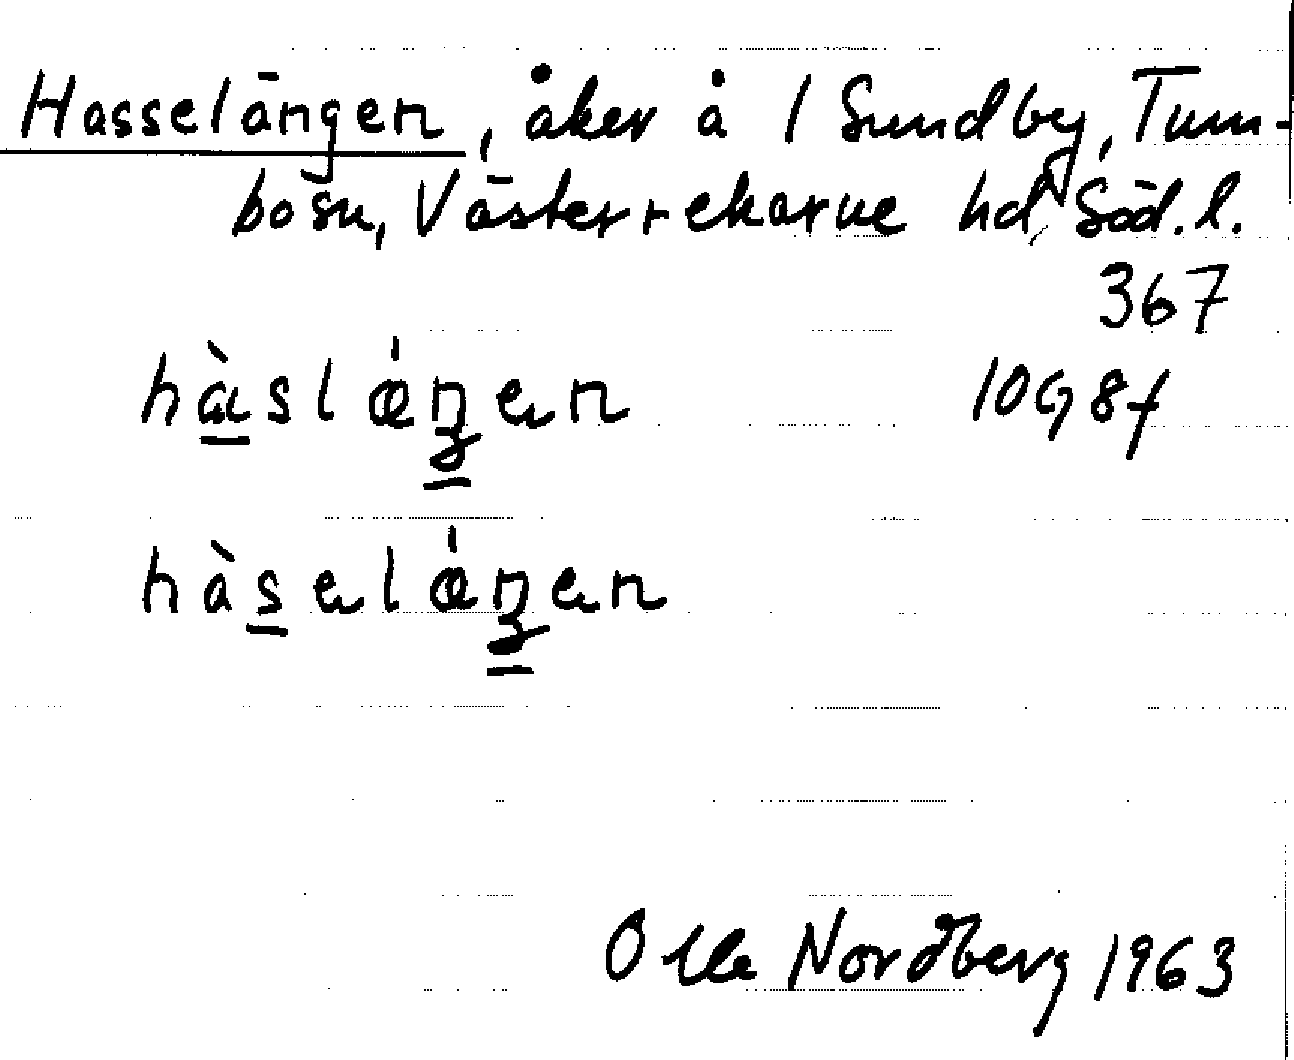 Hasselängen, åker å 1 Sundby, Tum-
bo sn, Västerrekarne hd, Söd. l.
367
hàslǽŋen 10G8f
hàselǽŋen
Olle Nordberg 1963